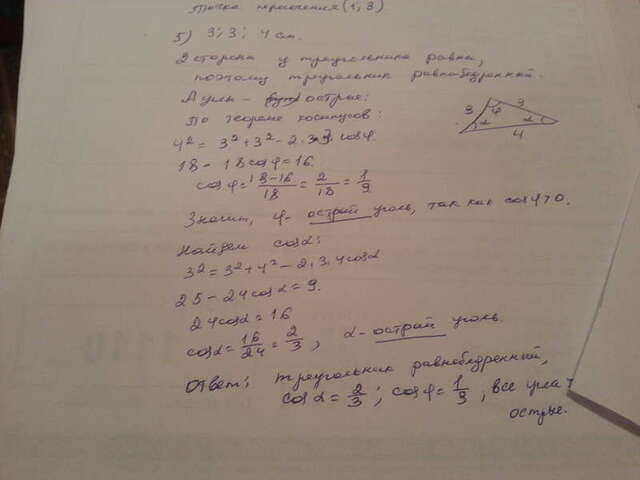 Точка пересечения (1; 3)
5) 3; 3; 4 см.
2 стороны у треугольника равны,
поэтому треугольник равнобедренный.
А углы - острые:
По теореме косинусов:
4² = 3² + 3² - 2·3·3·cosφ.
18 - 18cosφ = 16.
cosφ = 18-16/18 = 2/18 = 1/9
Значит, φ - острый угол, так как cosφ>0.
Найдем cosα:
3² = 3² + 4² - 2·3·4cosα
25 - 24cosα = 9.
24cosα = 16
cosα = 16/24 = 2/3, α - острый уголь.
Ответ: треугольник равнобедренный,
cosα = 2/3; cosφ = 1/9, все углы
острые.
3 φ 3
α α
4